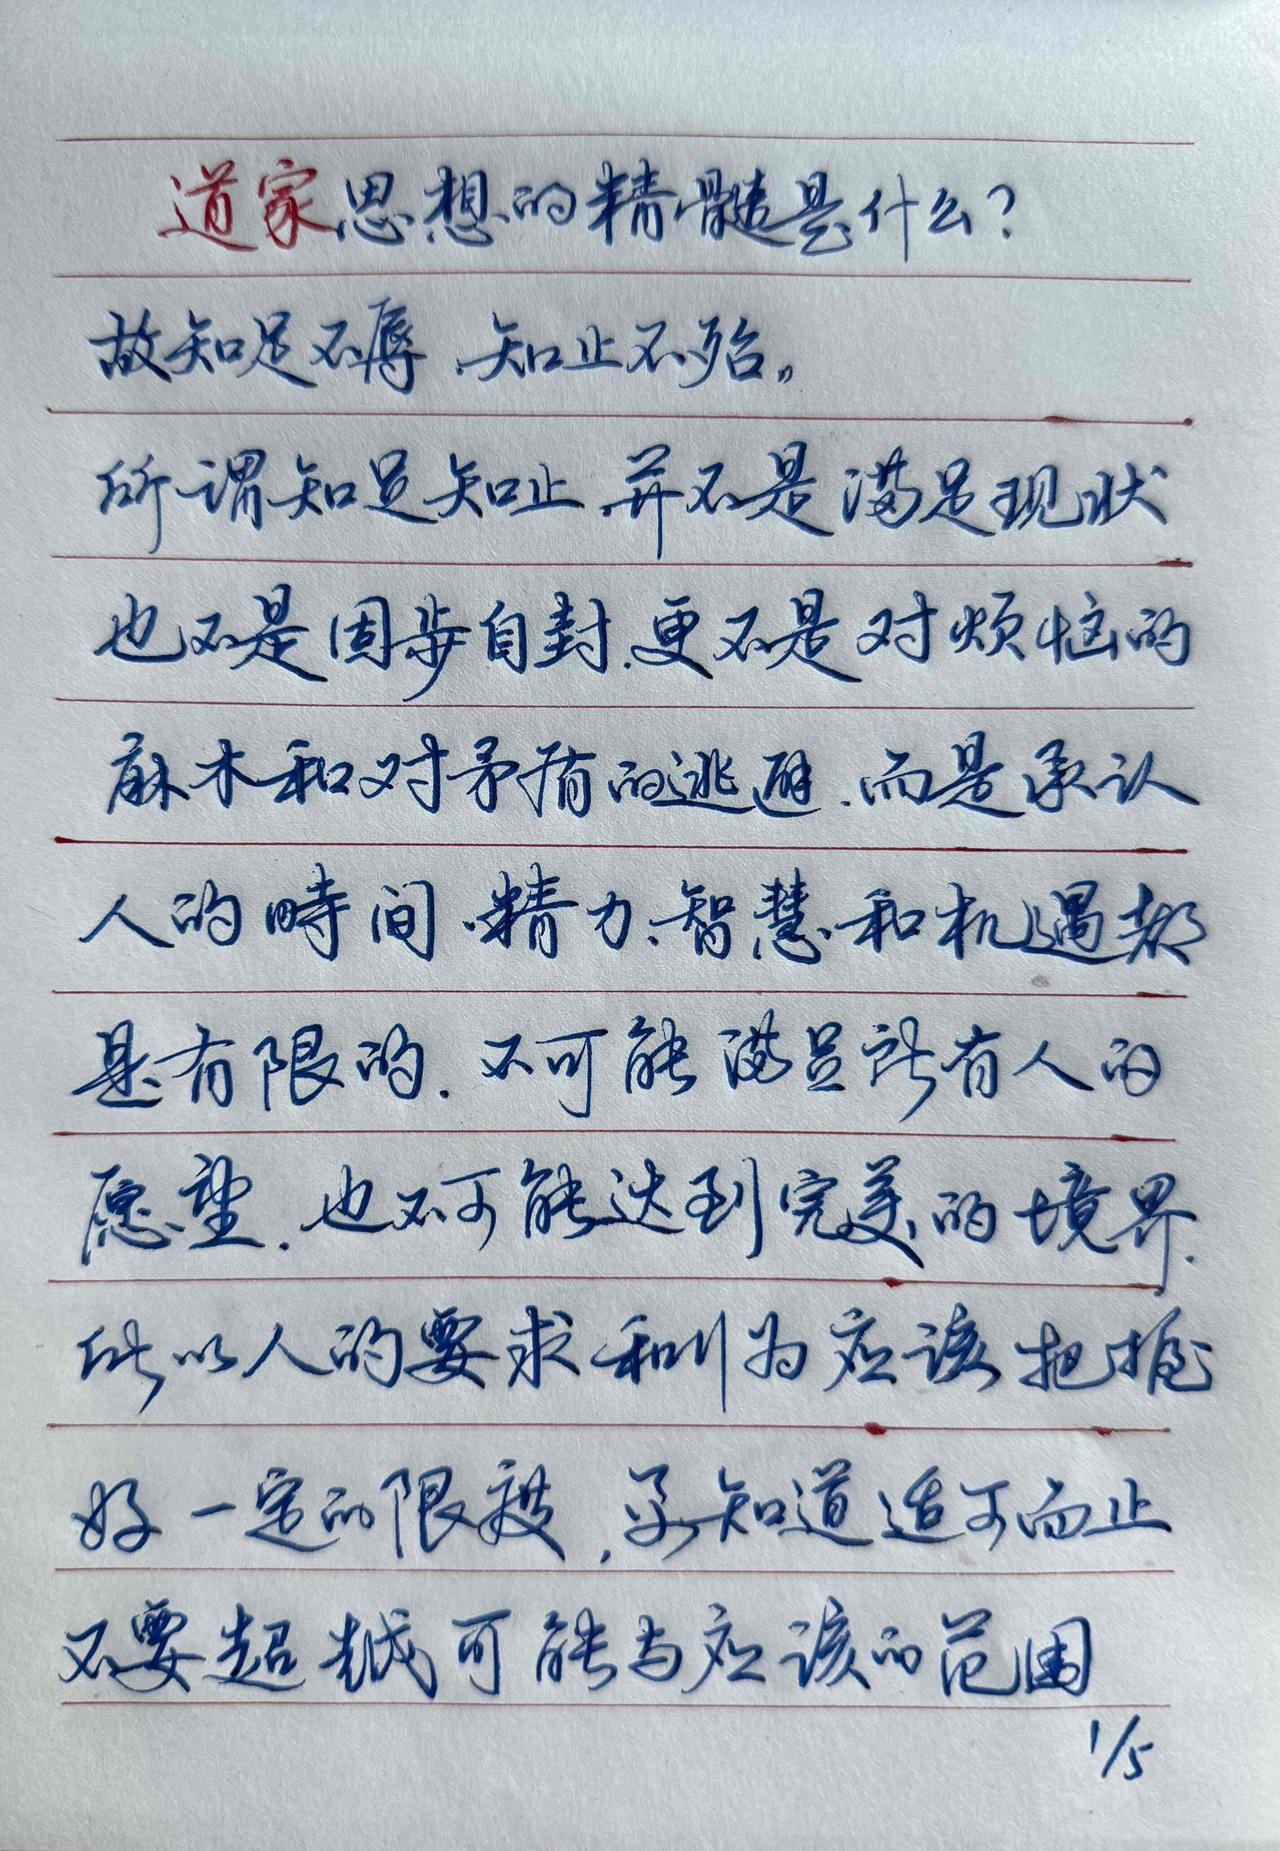 道家思想的精髓是什么？
故知足不辱、知止不殆。
所谓知足知止，并不是满足现状
也不是固步自封，更不是对烦恼的
麻木和对矛盾的逃避，而是承认
人的時间、精力、智慧和机遇都
是有限的，不可能满足所有人的
愿望，也不可能达到完美的境界，
所以人的要求和行为应该把握
好一定的限度，要知道适可而止
不要超越可能与应该的范围
1/5